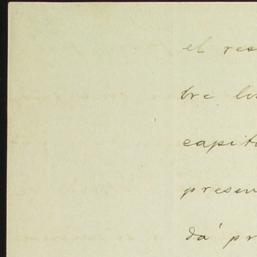 el res
bre lo
capito
presen
dá pr